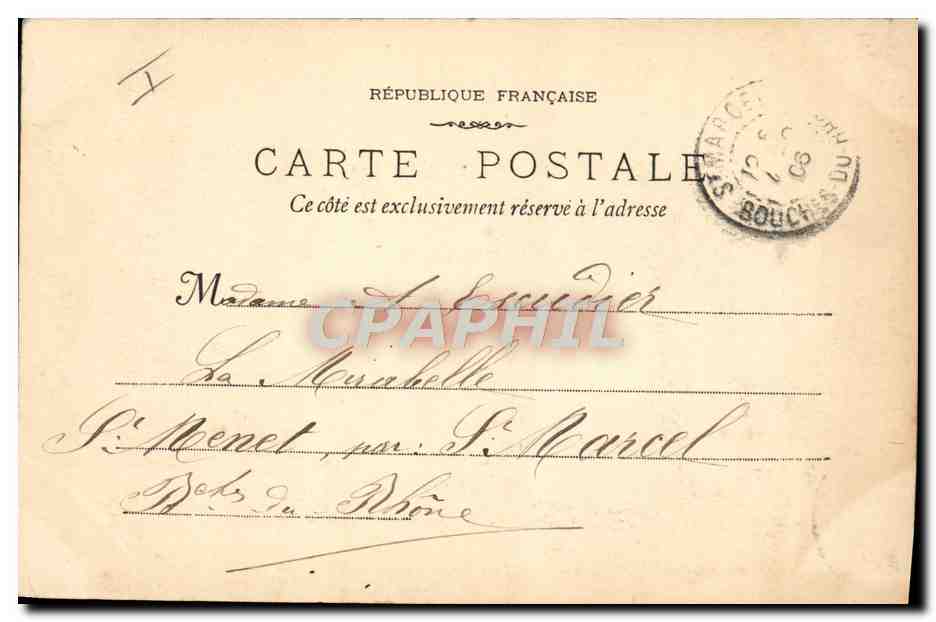 I
RÉPUBLIQUE FRANÇAISE
CARTE POSTALE
Ce côté est exclusivement réservé à l'adresse
ST MARCEL
12
06
BOUCHES-DU-RH
Madame
CPAPHIL
La Mirabelle
St. Menet, par: St. Marcel
Bches du Rhône